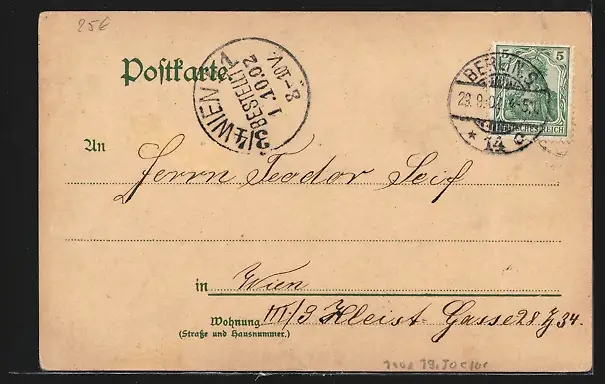 25€
Postkarte
3/4 WIEN 1
BESTELLT
1.10.02
8-10V.
BERLIN.S.
29.9.02 4-5N.
* 14 c
5
DEUTSCHES REICH
An
Herrn Teodor Seif
in Wien
Wohnung III/9 Kleist Gasse 28 Z 34.
(Straße und Hausnummer.)